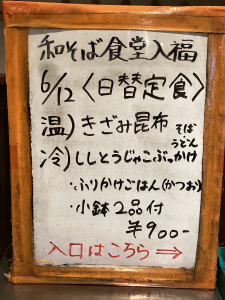 和そば食堂入福
6/12〈日替定食〉
温)きざみ昆布 そば うどん
冷)ししとうじゃこぶっかけ
・ふりかけごはん(かつお)
・小鉢2品付
¥900-
入口はこちら⇒